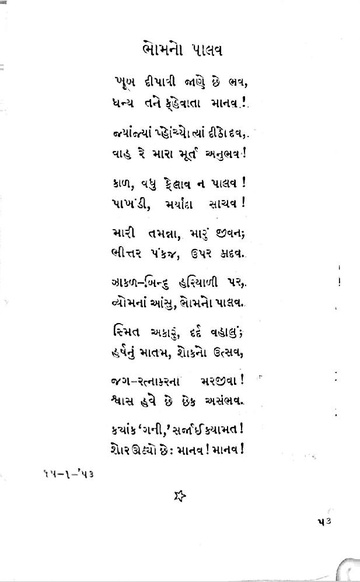 ભોમનો પાલવ
ખૂબ દીપાવી જાણે છે ભવ,
ધન્ય તને ક્‌હેવાતા માનવ!
જ્યાંજ્યાં પ્હોંચ્યો ત્યાં દીઠો દવ,
વાહ રે મારા મૂર્ત અનુભવ!
કાળ, વધુ ફેલાવ ન પાલવ!
પાખંડી, મર્યાદા સાચવ!
મારી તમન્ના, મારું જીવન;
ભીતર પંકજ, ઉપર કાદવ.
ઝાકળ-બિન્દુ હરિયાળી પર,
વ્યોમનાં આંસુ, ભોમનો પાલવ.
સ્મિત અકારું, દર્દ વહાલું;
હર્ષનું માતમ, શોકનો ઉત્સવ,
જગ-રત્નાકરના મરજીવા!
શ્વાસ હવે છે છેક અસંભવ.
ક્યાંક ‘ગની,’ સર્જાઈ કયામત!
શોર ઊઠ્યો છેઃ માનવ! માનવ!
૧૫-૧-’૫૩
૫૩